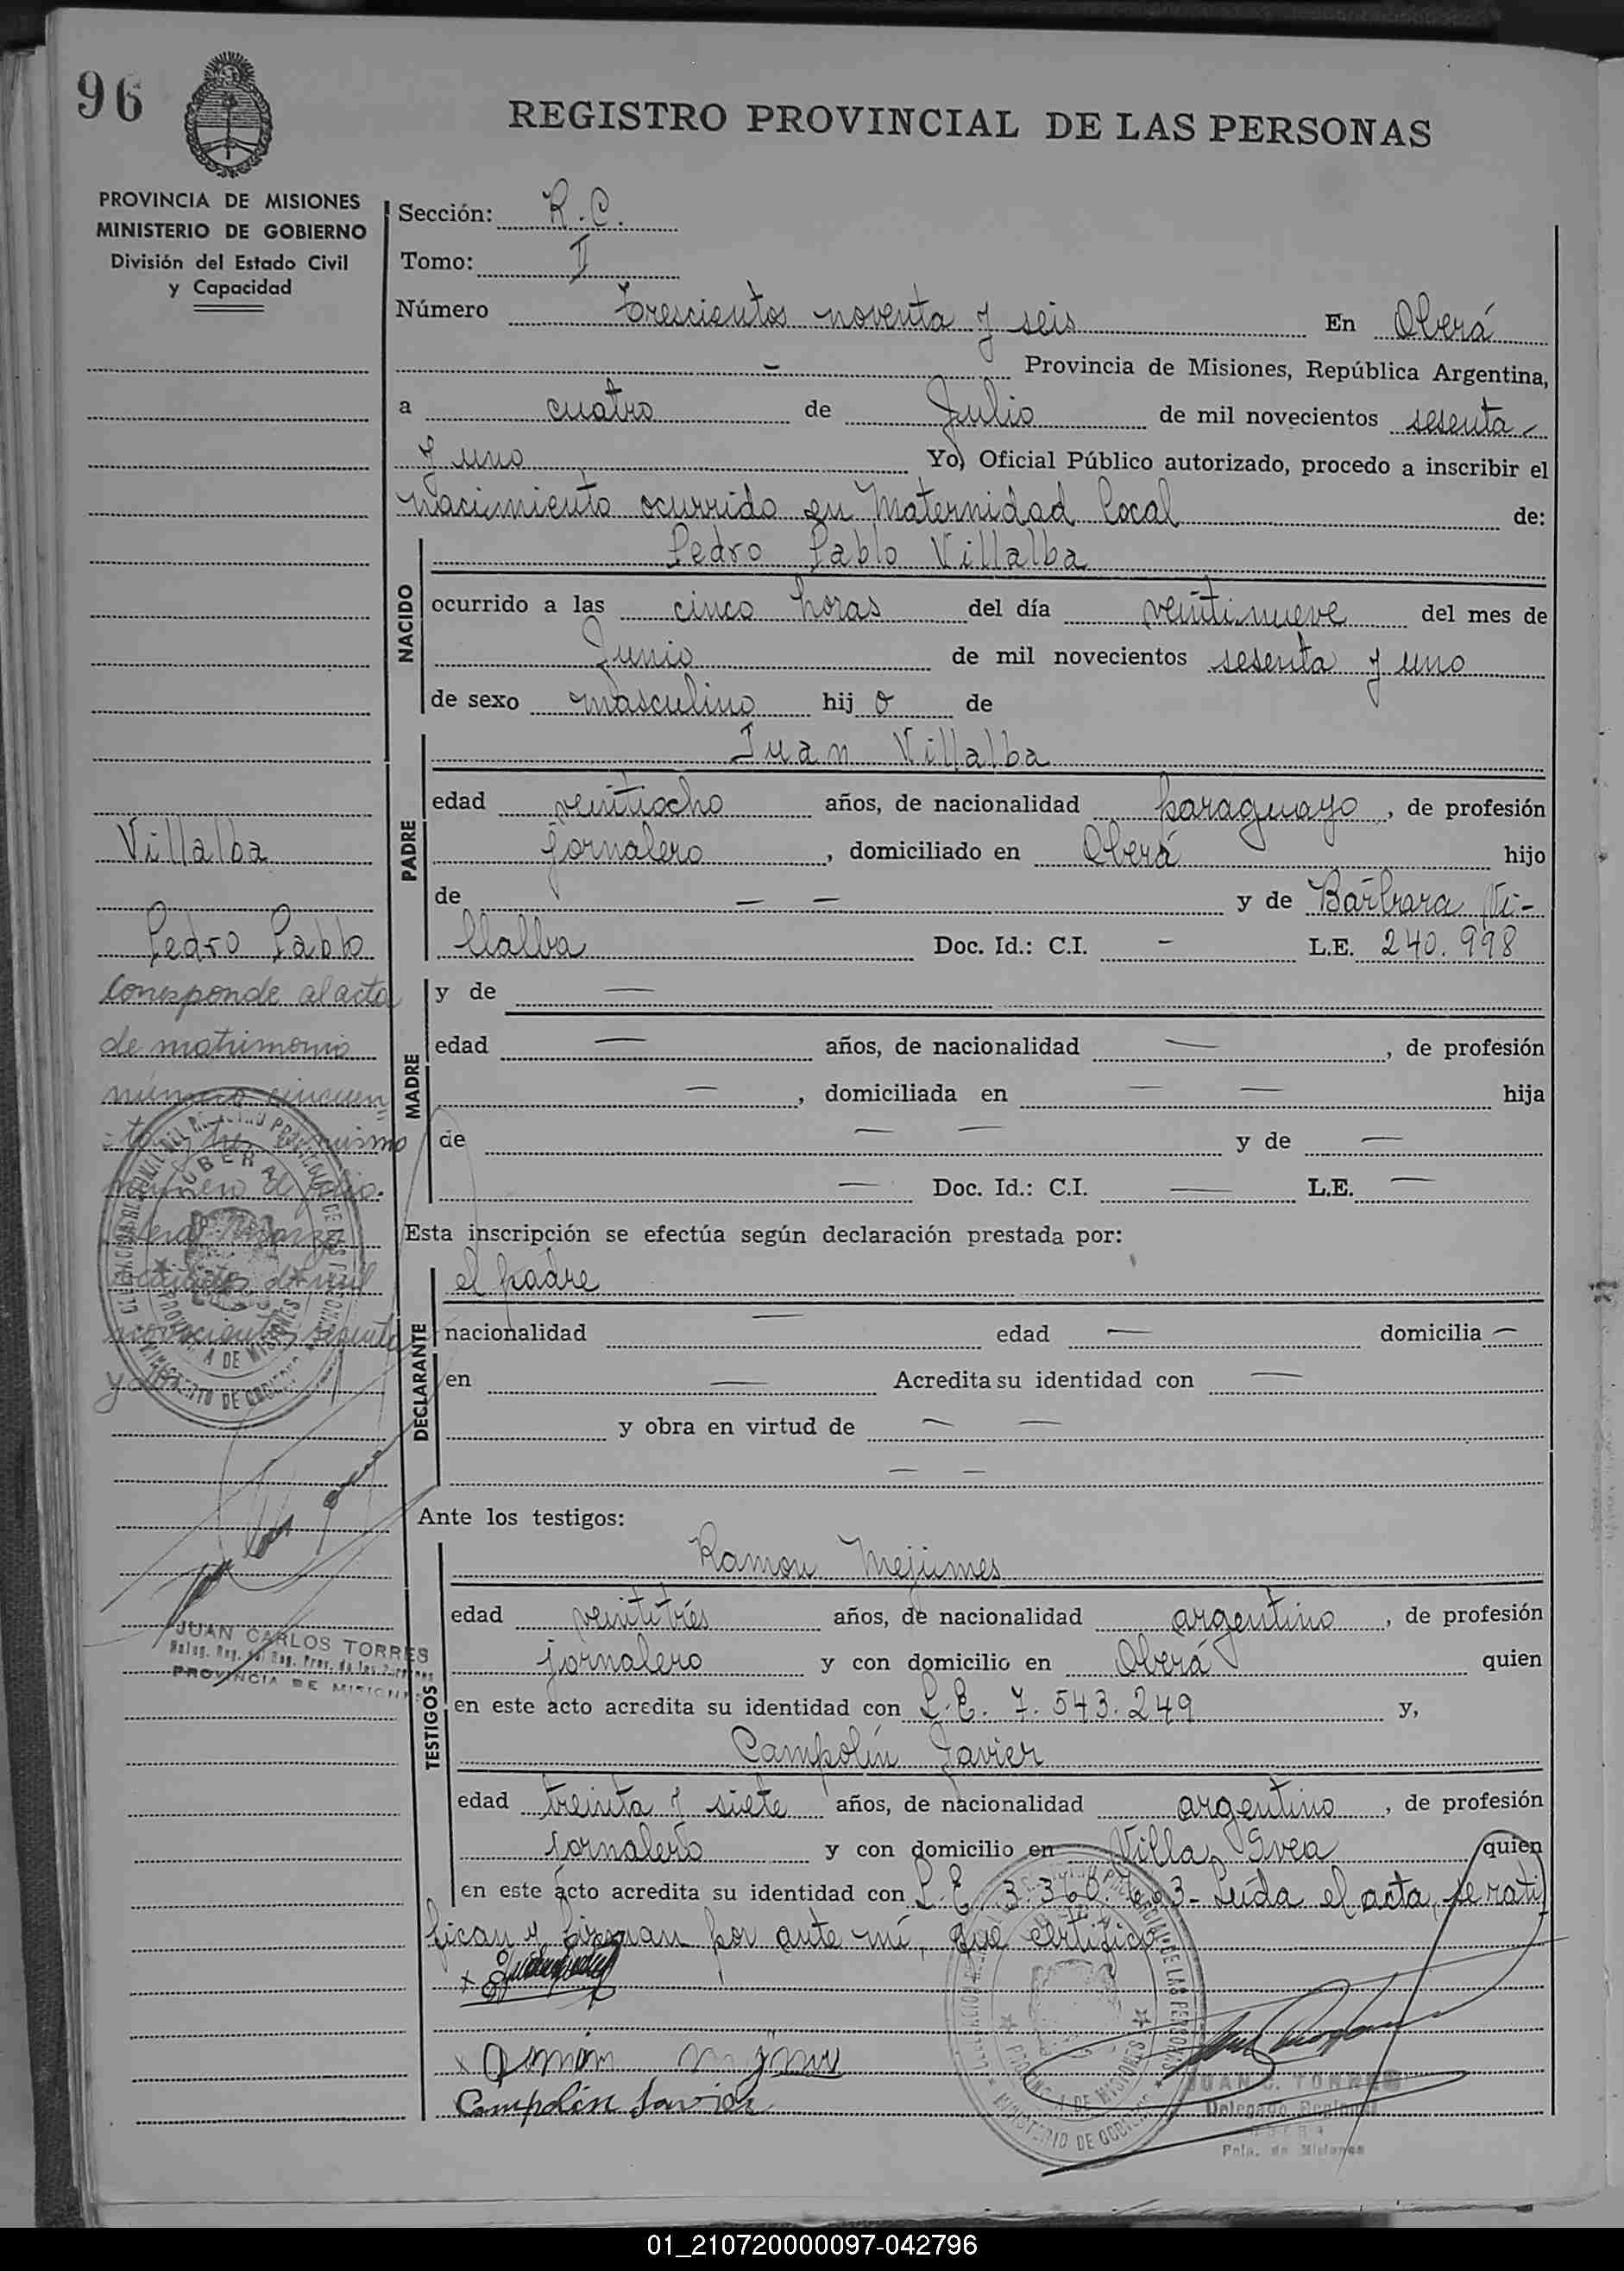 96
REGISTRO PROVINCIAL DE LAS PERSONAS
PROVINCIA DE MISIONES
MINISTERIO DE GOBIERNO
División del Estado Civil
y Capacidad
Sección: R.C.
Tomo: II
Número trescientos noventa y seis En Oberá
Provincia de Misiones, República Argentina,
a cuatro de Julio de mil novecientos sesenta
y uno Yo, Oficial Público autorizado, procedo a inscribir el
nacimiento ocurrido en Maternidad Local de:
NACIDO
Pedro Pablo Villalba
ocurrido a las cinco horas del día veintinueve del mes de
Junio de mil novecientos sesenta y uno
de sexo masculino hij o de
PADRE
Juan Villalba
edad veintiocho años, de nacionalidad paraguayo, de profesión
jornalero, domiciliado en Oberá hijo
de — — y de Bárbara Vi-
llalba Doc. Id.: C.I. - L.E. 240.998
MADRE
y de —
edad — años, de nacionalidad —, de profesión
—, domiciliada en — — hija
de — — y de —
— Doc. Id.: C.I. — L.E. —
Esta inscripción se efectúa según declaración prestada por:
DECLARANTE
el padre
nacionalidad — edad — domicilia —
en — Acredita su identidad con —
y obra en virtud de — —
— —
Ante los testigos:
TESTIGOS
Ramon Mejimes
edad veintitrés años, de nacionalidad argentino, de profesión
jornalero y con domicilio en Oberá quien
en este acto acredita su identidad con L.E. 7.543.249 y,
Campolín Javier
edad treinta y siete años, de nacionalidad argentino, de profesión
jornalero y con domicilio en Villa Svea quien
en este acto acredita su identidad con L.E. 3.360. Leída el acta, se rati
fican y firman por ante mí, que certifico
Campolín Javier
JUAN C. TORRES
Delegado Regional
Pcia. de Misiones
Villalba
Pedro Pablo
Corresponde al acta
de matrimonio
número cincuen
ta y tres mismo
novecientos sesenta
JUAN CARLOS TORRES
Deleg. Reg. del Reg. Prov. de las Personas
PROVINCIA DE MISIONES
01_210720000097-042796